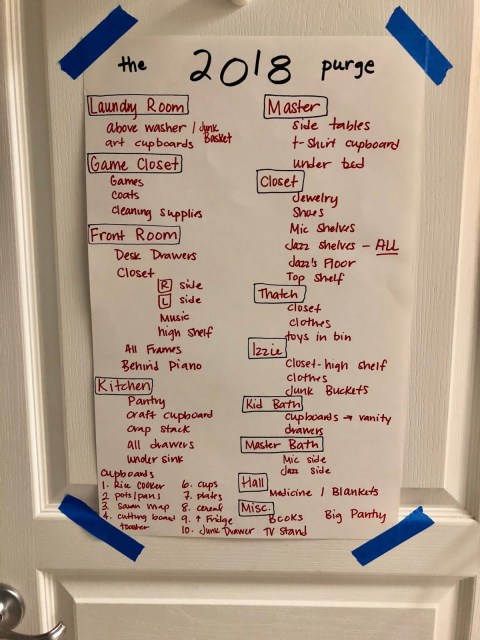 the 2018 purge
Laundry Room
above washer / Junk Basket
art cupboards
Game Closet
Games
Coats
Cleaning Supplies
Front Room
Desk Drawers
Closet
R side
L side
Music
high shelf
All Frames
Behind Piano
Kitchen
Pantry
Craft Cupboard
Crap stack
All drawers
Under sink
Cupboards
1. Rice cooker
2. pots/pans
3. Saran wrap
4. cutting board
toaster
6. cups
7. plates
8. cereal
9. ↑ Fridge
10. Junk Drawer
Master
Side tables
t-shirt cupboard
under bed
Closet
Jewelry
Shoes
Mic Shelves
Jazz shelves - ALL
Jazz's Floor
Top Shelf
Thatch
closet
clothes
toys in bin
Izzie
Closet-high shelf
clothes
Junk Buckets
Kid Bath
cupboards → vanity
drawers
Master Bath
Mic side
Jazz side
Hall
Medicine / Blankets
Misc.
Books Big Pantry
TV stand